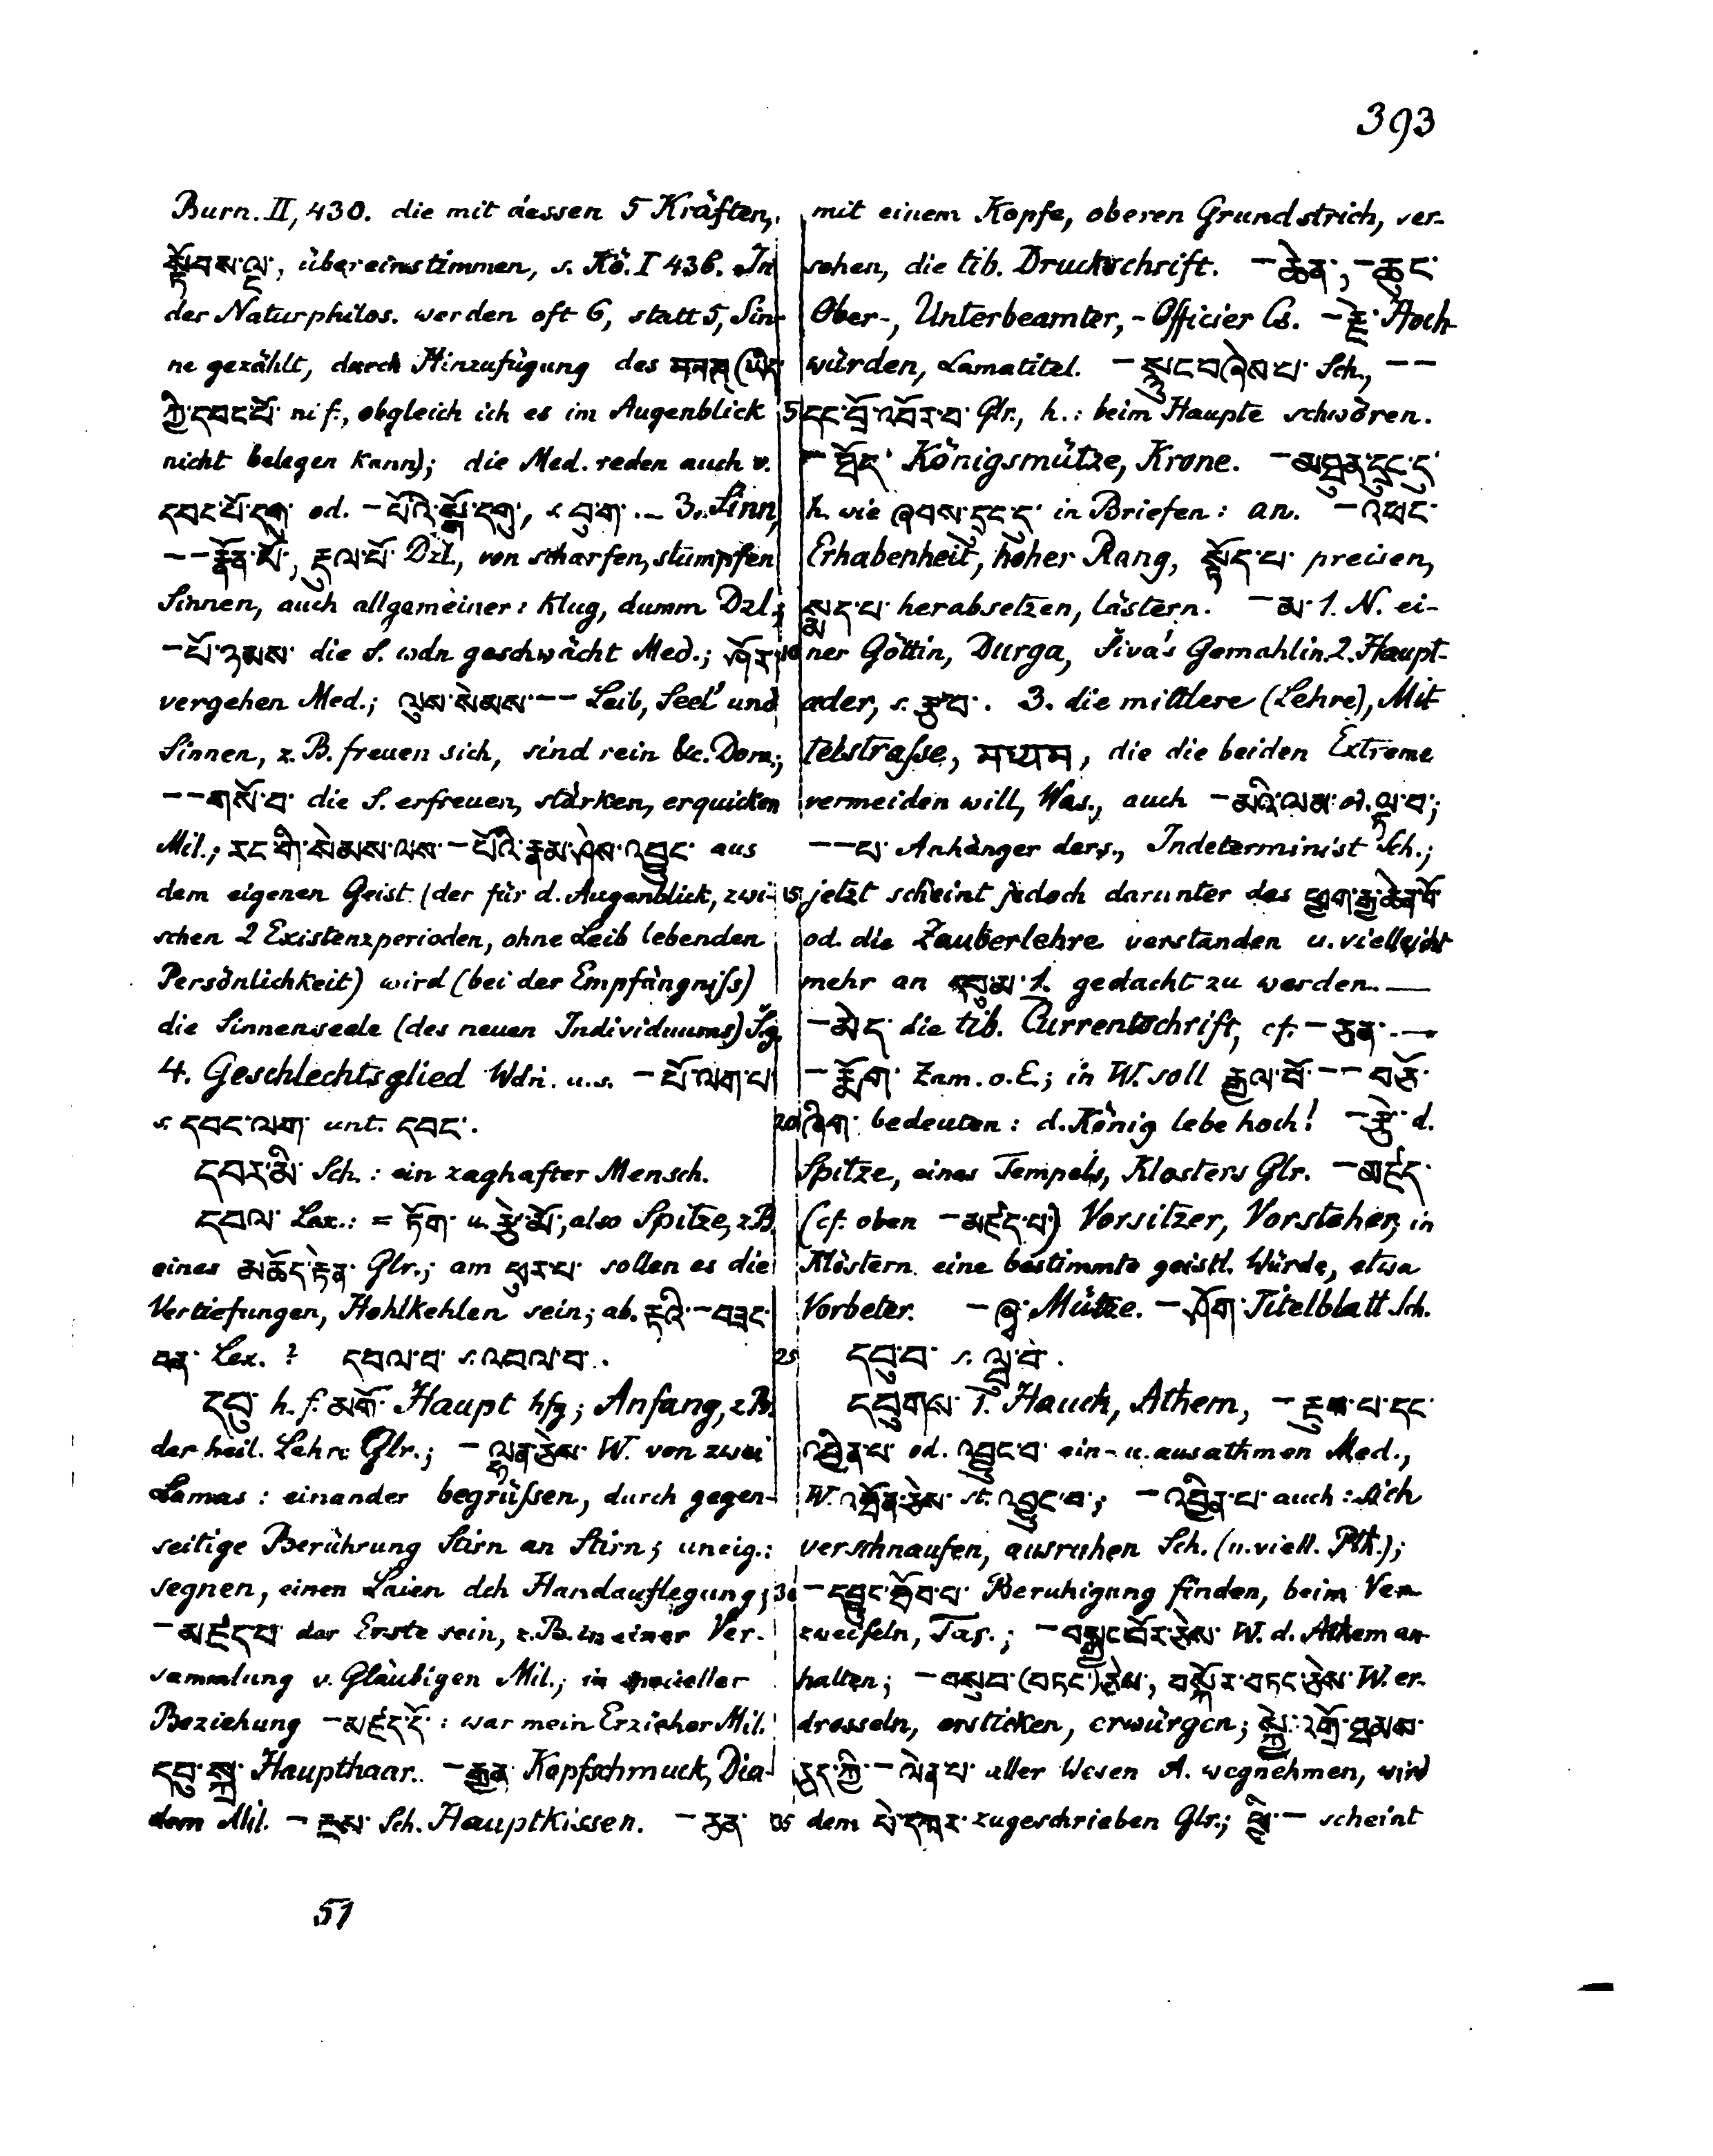 393
Burn. II, 430. die mit dessen 5 Kräften,
སྟོབས་ལྔ་, übereinstimmen, s. Kö. I 436. In
der Naturphilos. werden oft 6, statt 5, Sin-
ne gezählt, durch Hinzufügung des मनस् (ཡིད་
ཀྱི་དབང་པོ་ ni f., obgleich ich es im Augenblick
nicht belegen kann); die Med. reden auch v.
དབང་པོ་དགུ་ od. – པོའི་སྒོ་དགུ་, s བུ་ག་. – 3. Sinn,
– – རྣོན་པོ་, རྟུལ་པོ་ Dzl., von scharfen, stumpfen
Sinnen, auch allgemeiner: klug, dumm Dzl.;
– པོ་ཉམས་ die S. wdn geschwächt Med.; ཤོར་
vergehen Med.; ལུས་སེམས་ – – Leib, Seel' und
Sinnen, z. B. freuen sich, sind rein &c. Dom.;
– – གསོ་བ་ die S. erfreuen, stärken, erquicken
Mil.; རང་གི་སེམས་ལས་ – པོའི་རྣམ་ཤེས་འབྱུང་ aus
dem eigenen Geist (der für d. Augenblick, zwi-
schen 2 Existenzperioden, ohne Leib lebenden
Persönlichkeit) wird (bei der Empfängniss)
die Sinnenseele (des neuen Individuums) S.g.
4. Geschlechtsglied Wdn. u. s. – པོ་ལག་པ་
s. དབང་ལག་ unt. དབང་.
དབར་མི་ Sch.: ein zaghafter Mensch.
དབལ་ Lex.: = ཏོག་ u. རྩེ་མོ་, also Spitze, z. B.
eines མཆོད་རྟེན་ Glr.; am ཕུར་པ་ sollen es die
Vertiefungen, Hohlkehlen sein; ab. རྟའི་ – བཟང་
བན་ Lex. ? དབལ་བ་ s. འབལ་བ་.
དབུ་ h. f. མགོ་ Haupt hfg; Anfang, z. B.
der heil. Lehre Glr.; – ལྷན་ཅེས་ W. von zwei
Lamas: einander begrüssen, durch gegen-
seitige Berührung Stirn an Stirn; uneig.:
segnen, einen Laien dch Handauflegung;
– མཛད་པ་ der Erste sein, z. B. in einer Ver-
sammlung v. Gläubigen Mil.; in specieller
Beziehung – མཛད་དོ་: war mein Erzieher Mil.
དབུ་སྐྲ་ Haupthaar. – རྒྱན་ Kopfschmuck, Dia-
dem Mil. – རྔས་ Sch. Hauptkissen. – ཅན་
51
mit einem Kopfe, oberen Grundstrich, ver-
sehen, die tib. Druckschrift. – ཆེན་, – ཆུང་
Ober-, Unterbeamter, -Officier Cs. – རྗེ་ Hoch-
würden, Lamatitel. – སྙུང་བཞེས་པ་ Sch., – –
དང་བྲོ་འབོར་བ་ Glr., h.: beim Haupte schwören.
– ཐོད་ Königsmütze, Krone. – མཐུན་དྲུང་དུ་
h. wie ཞབས་དྲུང་དུ་ in Briefen: an. – འཕང་
Erhabenheit, hoher Rang, སྟོད་པ་ preisen,
སྨད་པ་ herabsetzen, lästern. – མ་ 1. N. ei-
ner Göttin, Durga, Śiva's Gemahlin. 2. Haupt-
ader, s. རྩ་བ་. 3. die mittlere (Lehre), Mit
telstrasse, मध्यम, die die beiden Extreme
vermeiden will, Was., auch – མའི་ལམ་ od. ལྟ་བ་;
– – པ་ Anhänger ders., Indeterminist Sch.;
jetzt scheint jedoch darunter das ཕྱག་རྒྱ་ཆེན་པོ་
od. die Zauberlehre verstanden u. vielleicht
mehr an དབུ་མ་ 1. gedacht zu werden. —
– མེད་ die tib. Currentschrift, cf. – ཅན་. —
– རྨོག་ Zam. o. E.; in W. soll རྒྱལ་པོ་ – – བཙོ་
ཞིག་ bedeuten: d. König lebe hoch! – རྩེ་ d.
Spitze, eines Tempels, Klosters Glr. – མཛད་
(cf. oben – མཛད་པ་) Vorsitzer, Vorsteher, in
Klöstern eine bestimmte geistl. Würde, etwa
Vorbeter. – ཞྭ་ Mütze. – ཤོག་ Titelblatt Sch.
དབུ་བ་ s. ལྦུ་བ་.
དབུགས་ 1. Hauch, Athem, – རྔུབ་པ་དང་
འབྱིན་པ་ od. འབྱུང་བ་ ein- u. ausathmen Med.,
W. འཐོན་ཅེས་ st. འབྱུང་བ་; – འབྱིན་པ་ auch: sich
verschnaufen, ausruhen Sch. (u. viell. Pth.);
– དབྱུང་ཐོབ་པ་ Beruhigung finden, beim Ver-
zweifeln, Tar.; – བསྐྱང་བོར་ཅེས་ W. d. Athem an-
halten; – བསུབ་ (བཏང་) ཅེས་, བསྐོར་བཏང་ཅེས་ W. er-
drosseln, ersticken, erwürgen; སྐྱེ་འགྲོ་ཐམས་
ཅད་ཀྱི་ – ལེན་པ་ aller Wesen A. wegnehmen, wird
dem པེ་དཀར་ zugeschrieben Glr.; ཕྱི་ – scheint